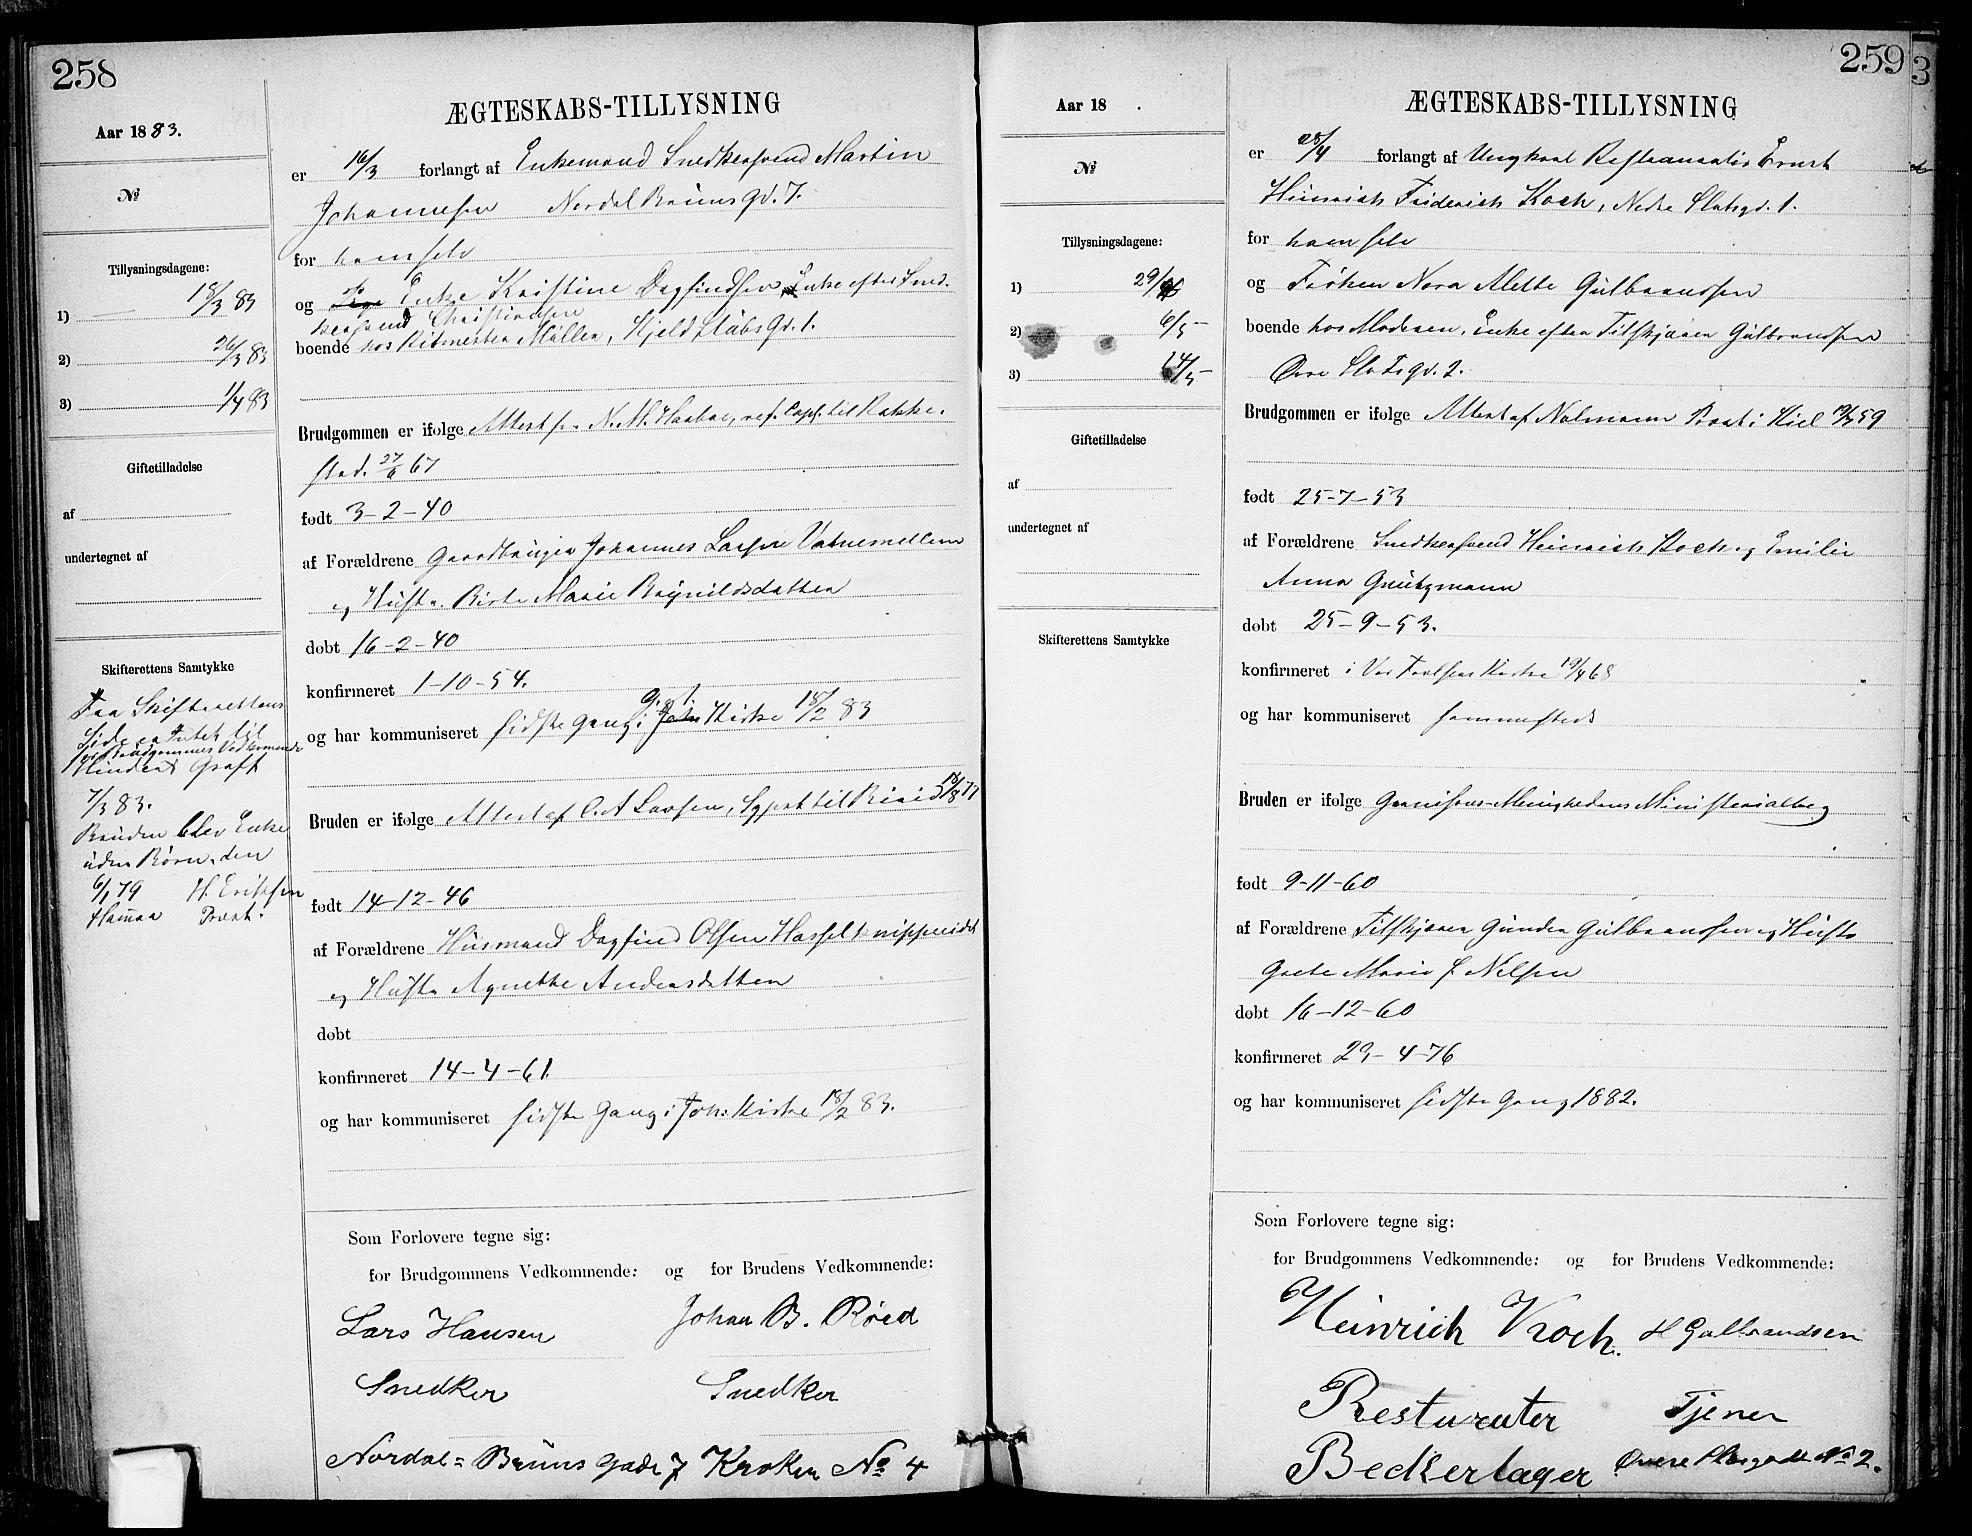 258
Aar 1883.
№
Tillysningsdagene:
1) 18/3 83
2) 26/3 83
3) 1/4 83
Giftetilladelse
af
undertegnet af
Skifterettens Samtykke
Fra Skifterettens
Side er Intet til
for Brudgommens Vedkommende
Hinder Graff
7/3 83.
Bruden blev Enke
uden Børn, den
6/1 79 H. Eriksen
Hamar Præst.
ÆGTESKABS-TILLYSNING
er 16/3 forlangt af Enkemand Snedkersvend Martin
Johannesen Nordal Bruns Gd. 7.
for ham selv
og Enke Kristine Dagfindsen, Enke efter Sned-
kersvend Christiansen
boende hos Ritmester Müller, Kjeld Stubs Gd. 1.
Brudgommen er ifølge Attest fra N. M. Haabae, res. Capl. til Rakke-
stad. 27/6 67
født 3-2-40
af Forældrene Gaardbruger Johannes Larsen Vatnemellem
og Hustr. Birte Marie Brynildsdatter
døbt 16-2-40
konfirmeret 1-10-54.
og har kommuniseret sidste Gang i Kirke 18/2 83
Bruden er ifølge Attest af C. A Larsen, Sgprst til Birid 18/8 79
født 14-12-46
af Forældrene Husmand Dagfind Olsen Hasselknippeidet
og Hustr Agnethe Andersdatter
døbt
konfirmeret 14-4-61.
og har kommuniseret sidste Gang i Joh: Kirke 18/2 83.
Som Forlovere tegne sig:
for Brudgommens Vedkommende: og for Brudens Vedkommende:
Lars Hansen Johan B. Röed
Snedker Snedker
Nordal=Bruns gade 7 Kroken No 4
259
Aar 18 .
№
Tillysningsdagene:
1) 29/4
2) 6/5 -
3) 14/5 -
Giftetilladelse
af
undertegnet af
Skifterettens Samtykke
ÆGTESKABS-TILLYSNING
er 28/4 forlangt af Ungkarl Restauratør Ernst
Heinrich Friderich Koch, Nedre Slotsgd. 1.
for ham selv
og Frøken Nora Alette Gulbrandsen
boende hos Moderen, Enke efter Tilskjærer Gulbrandsen
Øvre Slotsgd. 2.
Brudgommen er ifølge Attest af Præst i Kiel 59
født 25-7-53
af Forældrene Snedkersvend Heinrich Koch og Emilie
Anna Grützmann
døbt 25-9-53.
konfirmeret i Vor Frelsers Kirke 19/4 68
og har kommuniseret sammesteds
Bruden er ifølge Garnisons-Menighedens Ministerialbog
født 9-11-60
af Forældrene Tilskjærer Gunder Gulbrandsen og Hustr
Grete Marie f Nilsen
døbt 16-12-60
konfirmeret 23-4-76
og har kommuniseret sidste Gang 1882.
Som Forlovere tegne sig:
for Brudgommens Vedkommende: og for Brudens Vedkommende:
Heinrich Kock. H Gulbrandsen
Resturatør Tjener
Beckerlager Øvere Slosgade № 2.